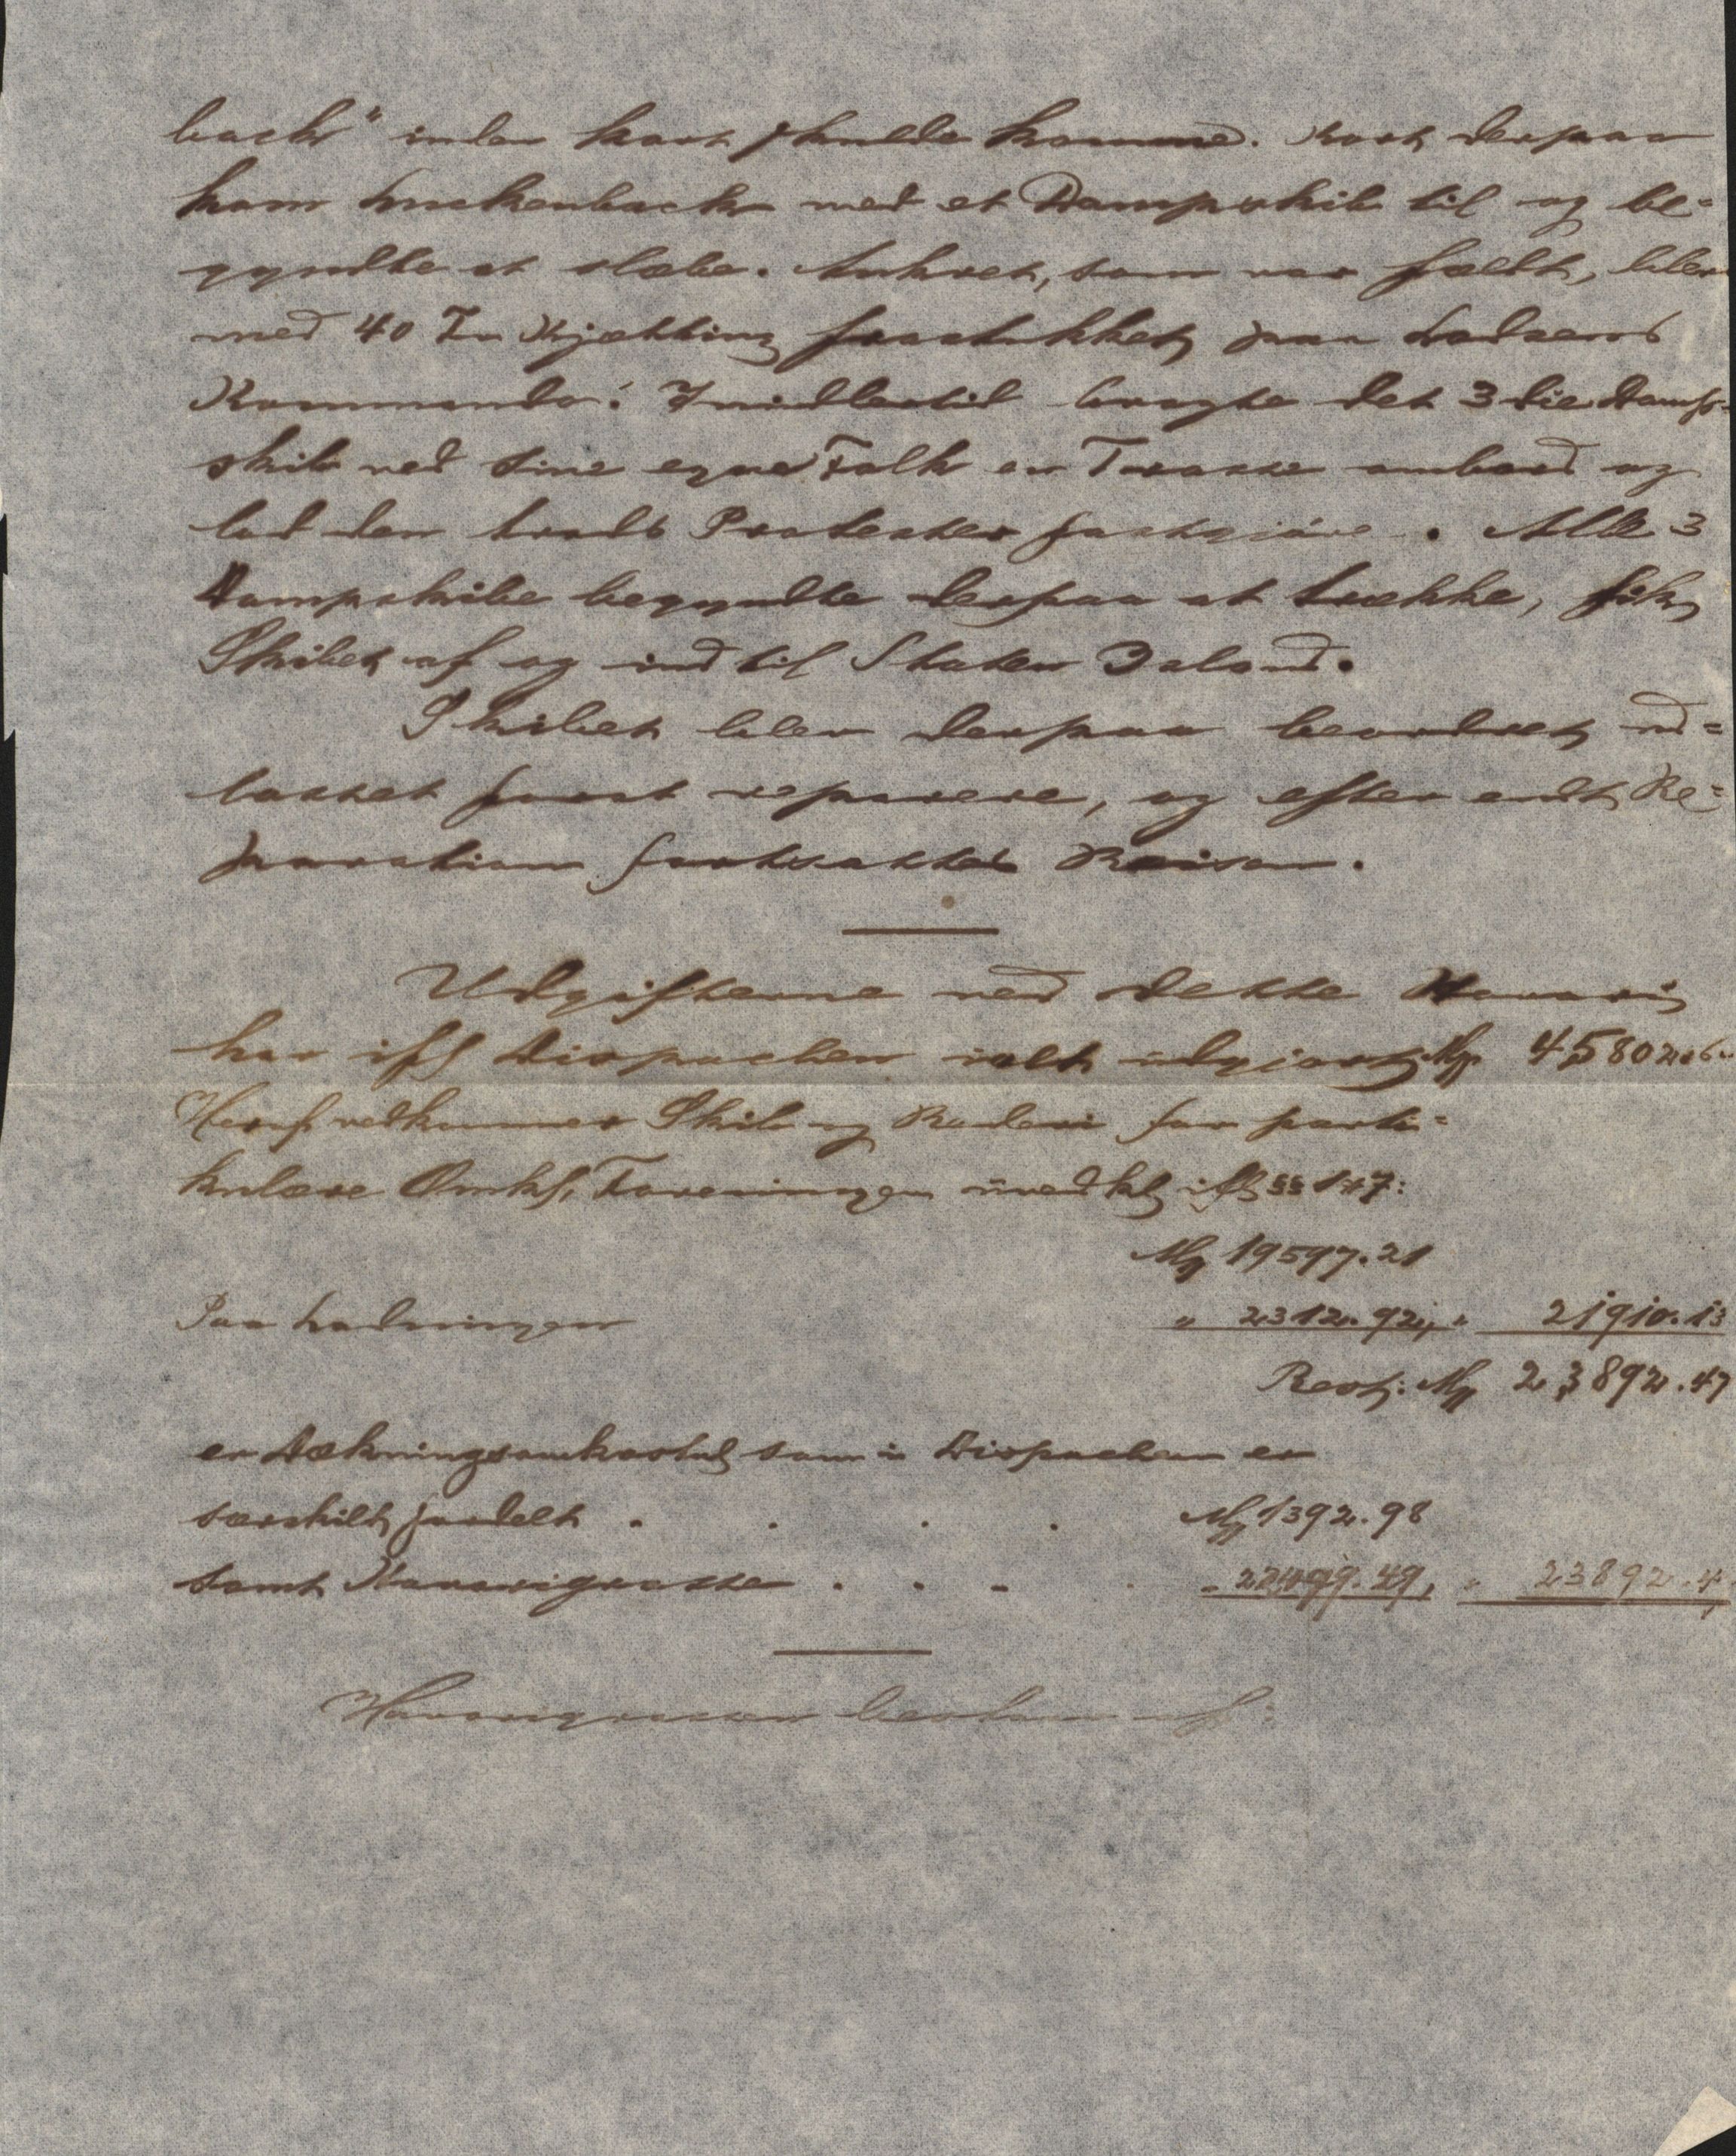 bach" inden kort skulde komme. Kort derpaa
kom Luckenbach med et Dampskib til og be=
gyndte at slæbe. Ankret, som var fældt, blev
med 40 Fv Kjætting frastukket paa Lodsens
Kommando. Imidlertid bragte det 3die Damp=
skib ved sine egne Folk en Trosse ombord og
lod den trods Protester fastgjøre. Alle 3
Dampskibe begyndte derpaa at trække, fik
Skibet af og ind til Staten Island.
Skibet blev derpaa beordret ud=
losset forat reparere, og efter endt Re=
paration fortsattes Reisen.
Udgifterne ved dette Havari
har iflg Dispachen ialt udgjort Mk 45802.60
Heraf vedkommer Skib og Rederi for parti=
kulære Omkf, Foreningen uvedk iflg §§ 1 & 7:
Mk 19597.21
Paa Ladningen " 2312.92, " 21910.13
Rest: Mk 23892.47
er Dækningsomkostng som i Dispachen er
særskilt fordelt . . . . Mk 1392.98
samt Havarigrosse . . . . " 22499.49, " 23892.4
Havarigrossen bestaar af: